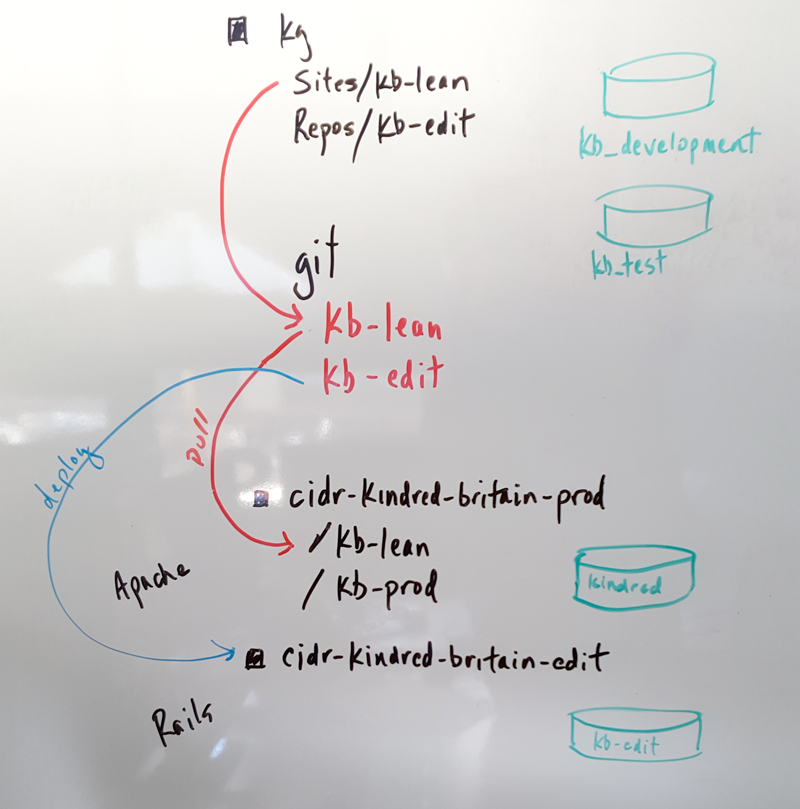 kg
Sites/kb-lean
Repos/kb-edit
kb_development
kb_test
git
kb-lean
kb-edit
pull
deploy
cidr-kindred-britain-prod
/kb-lean
/kb-prod
kindred
Apache
cidr-kindred-britain-edit
Rails
kb-edit